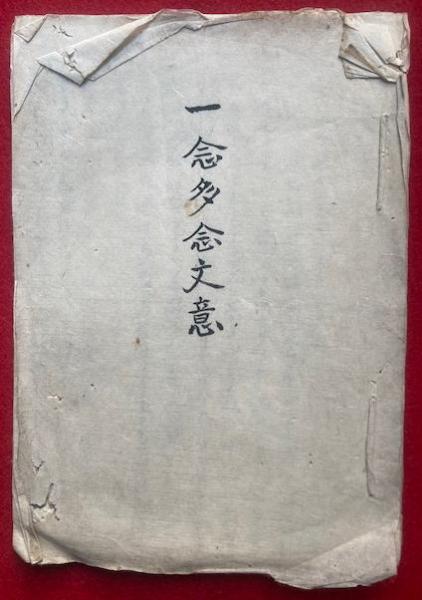 一念多念文意